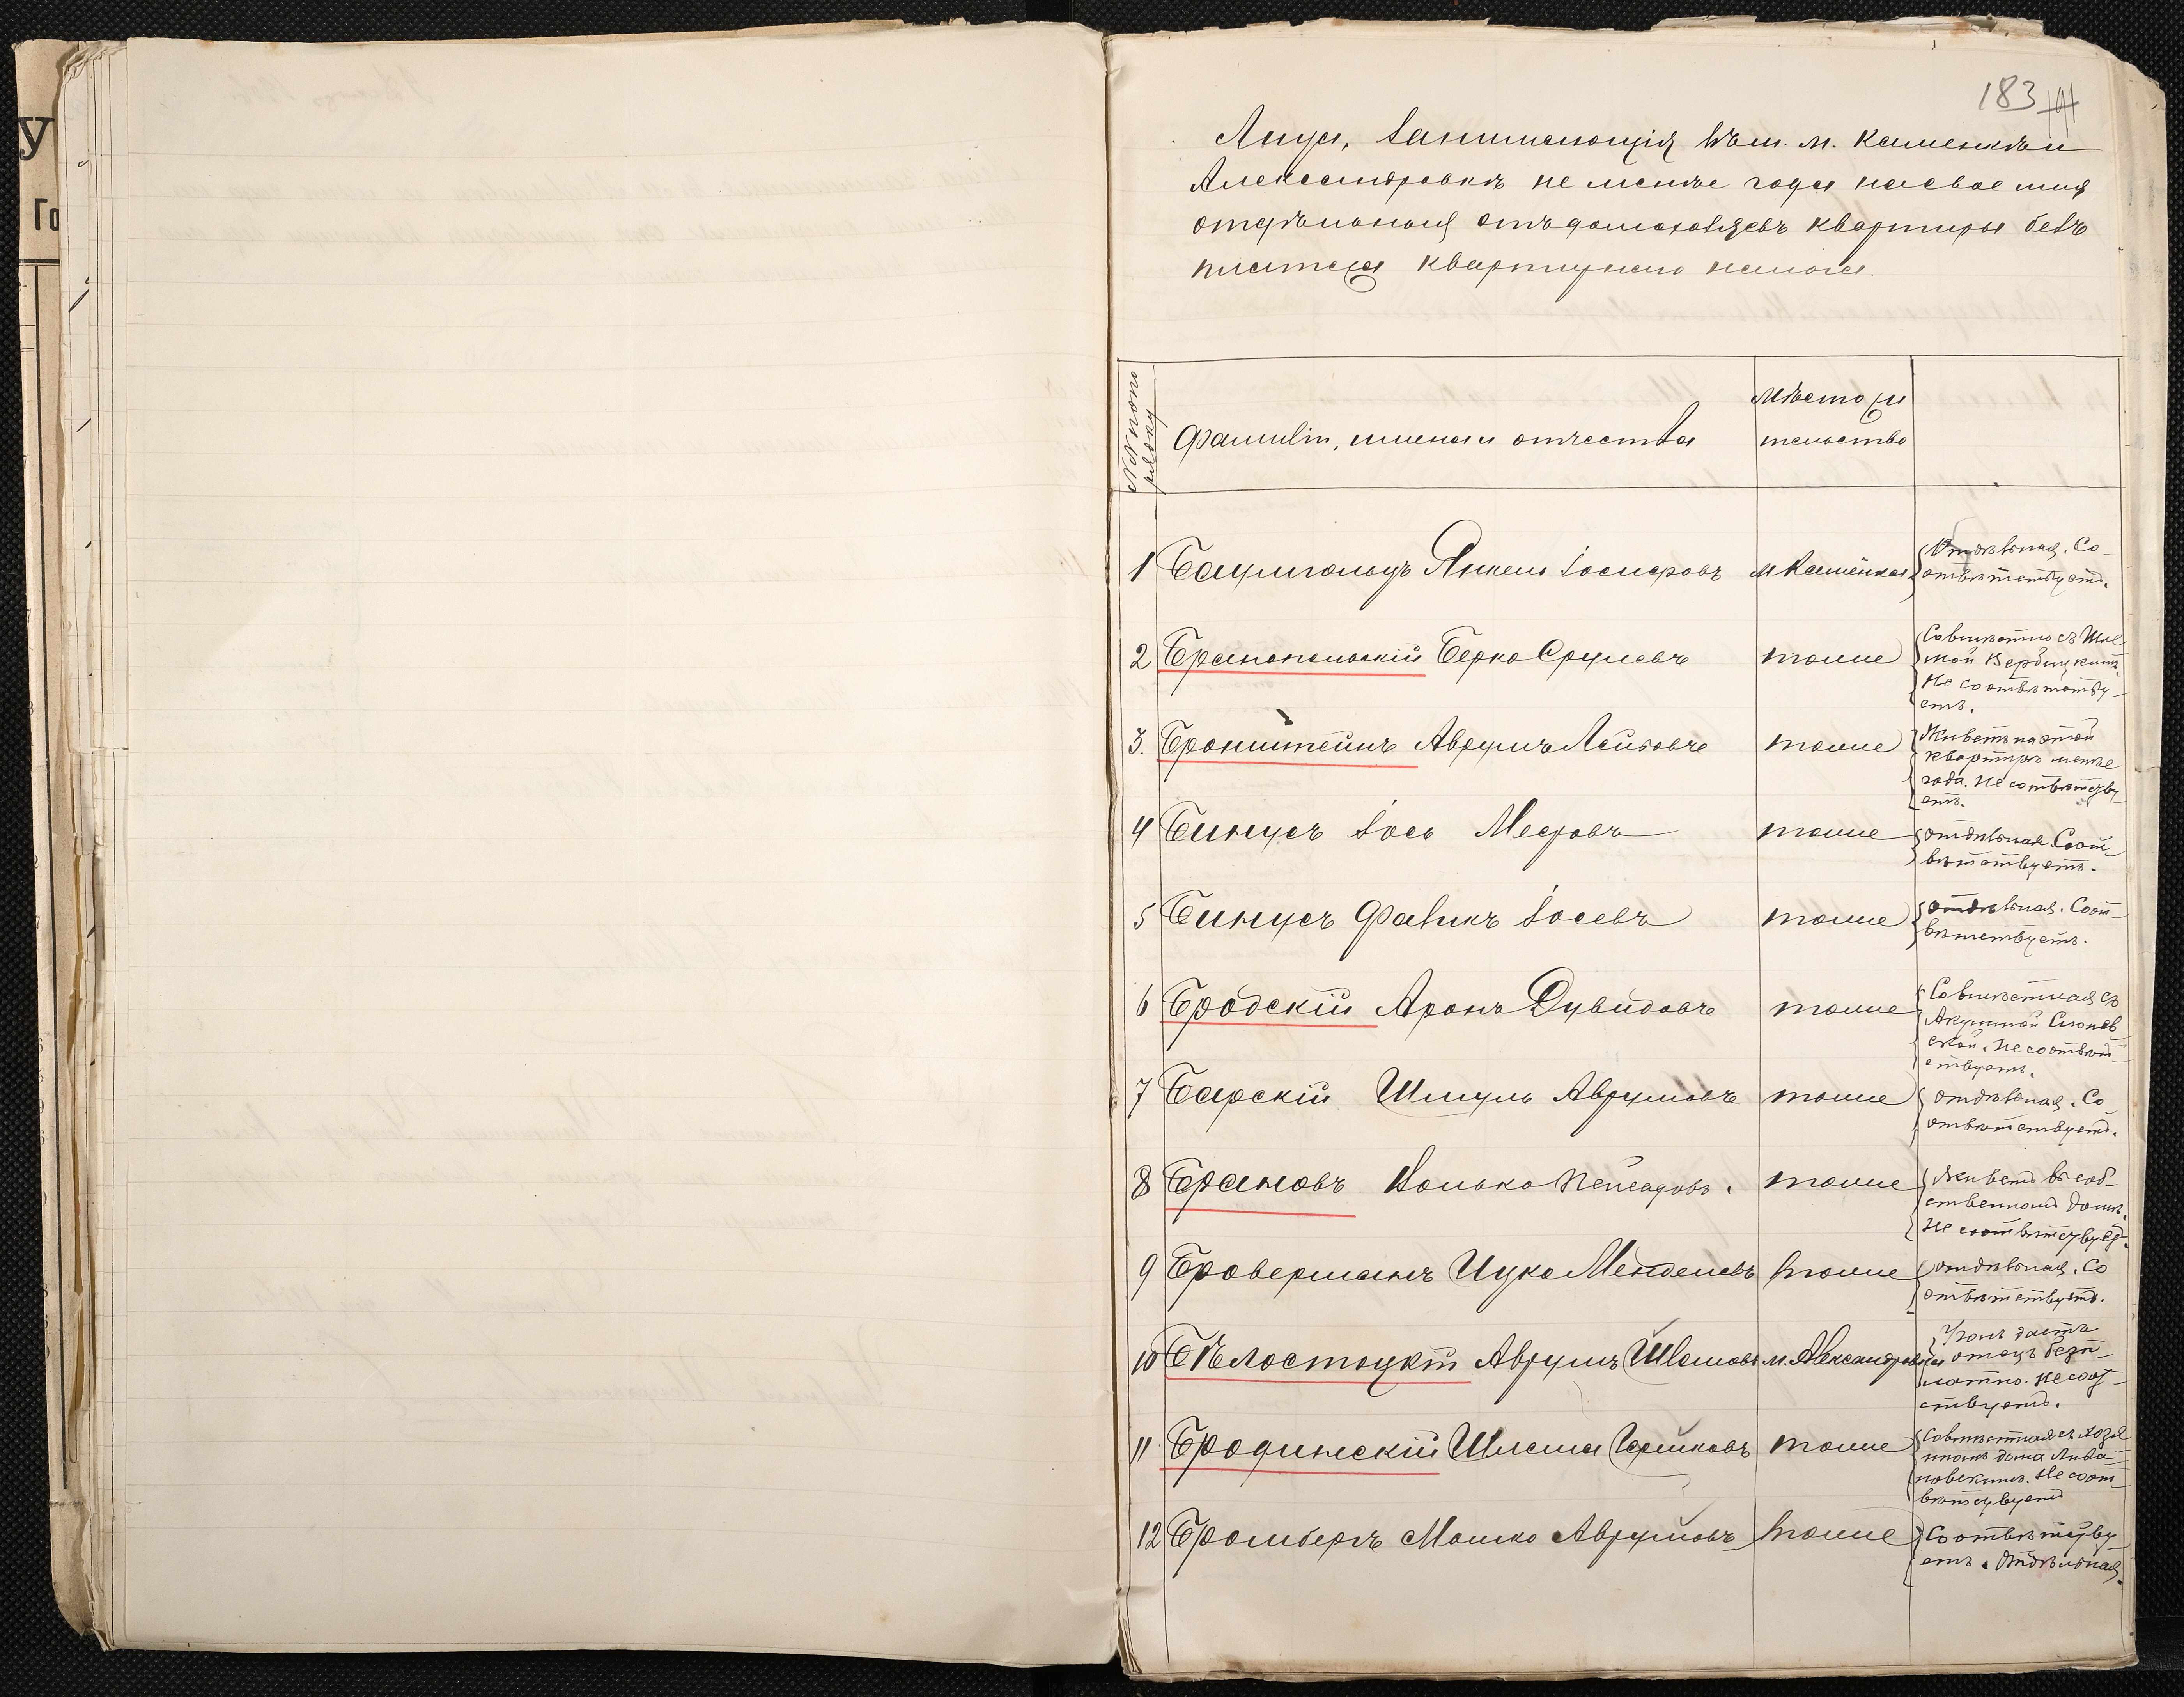 у
Го
183
Лица, занимающія въ м. м. Каменкѣ и
Александровкѣ не менѣе года на свое имя
отдѣльныя отъ домохозяевъ квартиры безъ
платежа квартирнаго налога.
№№ по по
рядку
Фамиліи, имена и отчества
Мѣсто жи
тельство
1 Баумгольцъ Янкель Іосифовъ м Каменка
Отдѣльная. Со
отвѣтствуетъ.
2 Бранопольскій Берко Сруловъ тоже
Совмѣстно съ
Не соотвѣтству
етъ.
3. Бронштейнъ Аврумъ Лейбовъ тоже
Живетъ на этой
квартирѣ менѣе
года. Не соотвѣтству
етъ.
4 Бинусъ Іось Мееровъ тоже
отдѣльная. Соот
вѣтствуетъ.
5 Бинусъ Файвикъ Іосевъ тоже
отдѣльная. Соот
вѣтствуетъ.
6 Бродскій Аронъ Дувидовъ тоже
Совмѣстная съ
Не соотвѣт
ствуетъ.
7 Барскій Шмуль Аврумовъ тоже
отдѣльная. Со
отвѣтствуетъ.
8 Брановъ Волько Пейсаховъ. тоже
Живетъ въ соб
ственномъ домѣ.
Не соотвѣтствуетъ.
9 Броверманъ Ицко Менделевъ тоже
отдѣльная. Со
отвѣтствуетъ.
10 Бѣлостоцкій Аврумъ Шлемовъ м. Александровка
даетъ
отецъ безп
латно. Не соот
ствуетъ.
11 Бродинскій Шлема Гершковъ тоже
Совмѣстная съ хозя
иномъ дома Лива
новскимъ. Не соот
вѣтствуетъ
12 Бромбергъ Мошко Аврумовъ тоже
Соотвѣтству
етъ. Отдѣльная.